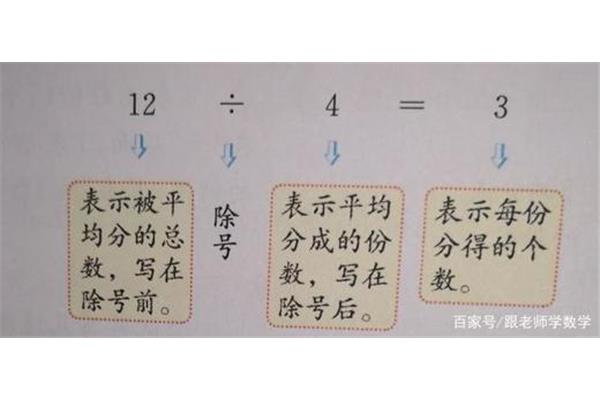 12 ÷ 4 = 3
表示被平
均分的总
数，写在
除号前。
除
号
表示平均
分成的份
数，写在
除号后。
表示每份
分得的个
数。
百家号/跟老师学数学